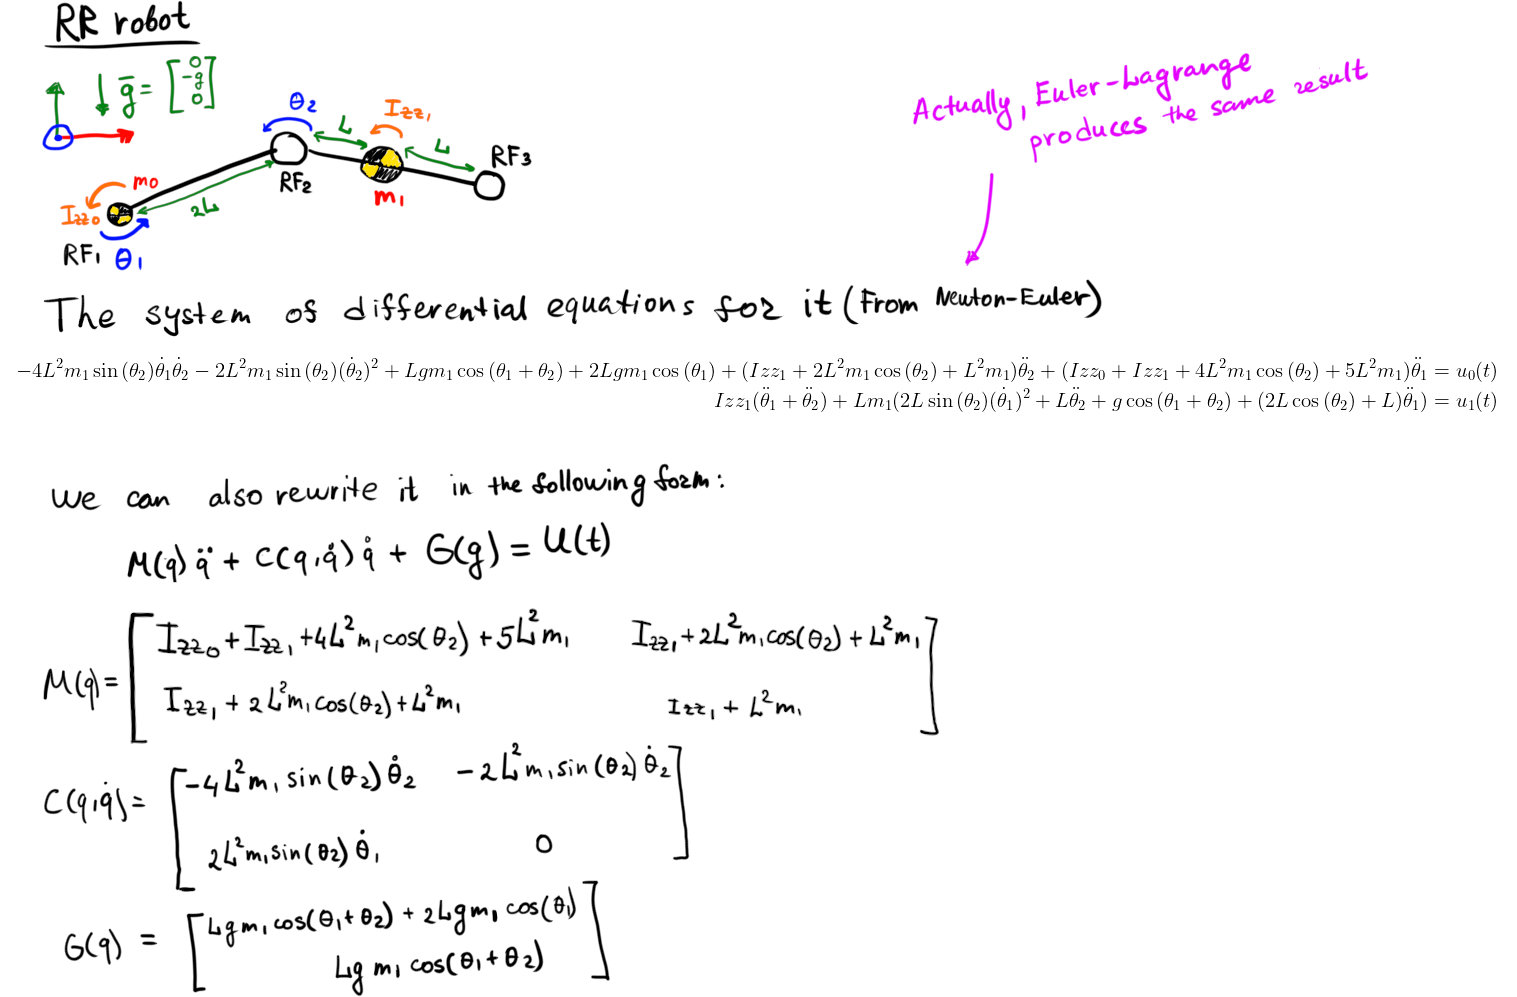 RR robot
g̅ = [0 -g 0]
θ₂
Izz₁
L
L
RF3
RF₂
m₁
m₀
Izz₀
2L
RF₁ θ₁
Actually, Euler-Lagrange
produces the same result
The system of differential equations for it (From Newton-Euler)
−4L²m₁ sin (θ₂)θ̇₁θ̇₂ − 2L²m₁ sin (θ₂)(θ̇₂)² + Lgm₁ cos (θ₁ + θ₂) + 2Lgm₁ cos (θ₁) + (Izz₁ + 2L²m₁ cos (θ₂) + L²m₁)θ̈₂ + (Izz₀ + Izz₁ + 4L²m₁ cos (θ₂) + 5L²m₁)θ̈₁ = u₀(t)
Izz₁(θ̈₁ + θ̈₂) + Lm₁(2L sin (θ₂)(θ̇₁)² + Lθ̈₂ + g cos (θ₁ + θ₂) + (2L cos (θ₂) + L)θ̈₁) = u₁(t)
we can also rewrite it in the following form:
M(q) q̈ + C(q,q̇) q̇ + G(g) = U(t)
M(q) = [Izz₀ + Izz₁ + 4L²m₁cos(θ₂) + 5L²m₁ Izz₁ + 2L²m₁cos(θ₂) + L²m₁
Izz₁ + 2L²m₁cos(θ₂) + L²m₁ Izz₁ + L²m₁]
C(q,q̇) = [-4L²m₁ sin(θ₂) θ̇₂ -2L²m₁sin(θ₂) θ̇₂
2L²m₁sin(θ₂) θ̇₁ 0]
G(q) = [Lgm₁cos(θ₁+θ₂) + 2Lgm₁ cos(θ₁)
Lg m₁ cos(θ₁+θ₂)]